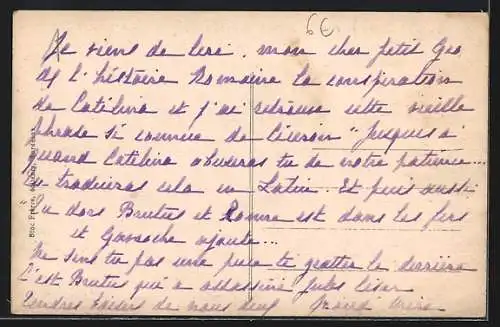 6€
Je viens de lire, mon cher petit Geo
de l'histoire Romaine la conspiration
de Catilina et j'ai retrouvé cette vieille
phrase si connue de Ciceron "Jusques à
quand Catilina abuseras tu de notre patience...
Tu traduiras cela en Latin. Et puis aussi
Tu dors Brutus et Rome est dans les fers
et Gavroche ajoute...
Ne sens tu pas une puce te gratter le derrière
C'est Brutus qui a assassiné Jules César
Tendres baisers de nous deux Grand